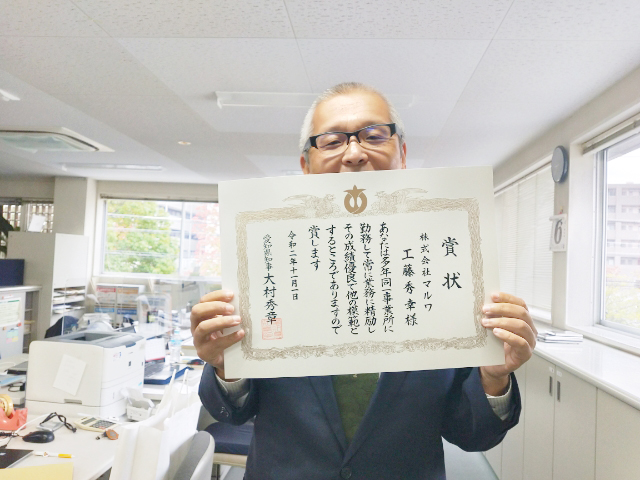 賞状
株式会社マルワ
工藤秀幸様
あなたは多年同一事業所に
勤務して常に業務に精励し
その成績優良で他の模範と
するところでありますので
賞します
令和二年十一月一日
愛知県知事 大村秀章
6